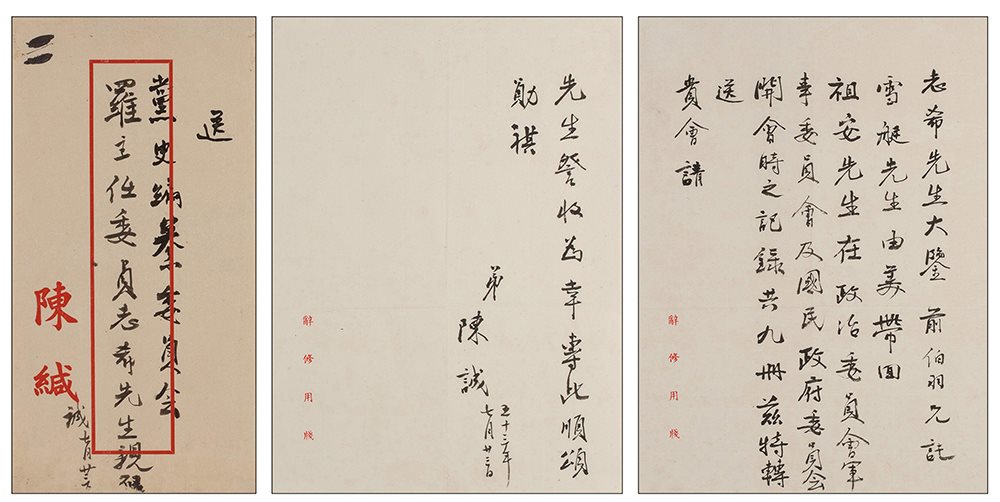 志希先生大鑒 前伯羽兄託
雪艇先生由美帶回
祖安先生在政治委員會軍
事委員會及國民政府委員会
開會時之記錄共九冊茲特轉
送
貴會請
辭修用牋
先生詧收為幸專此順頌
勛祺
弟 陳誠
五十三年
七月廿三日
辭修用牋
送
黨史編纂委員会
羅主任委員志希先生親啟
陳緘
誠 七月廿三